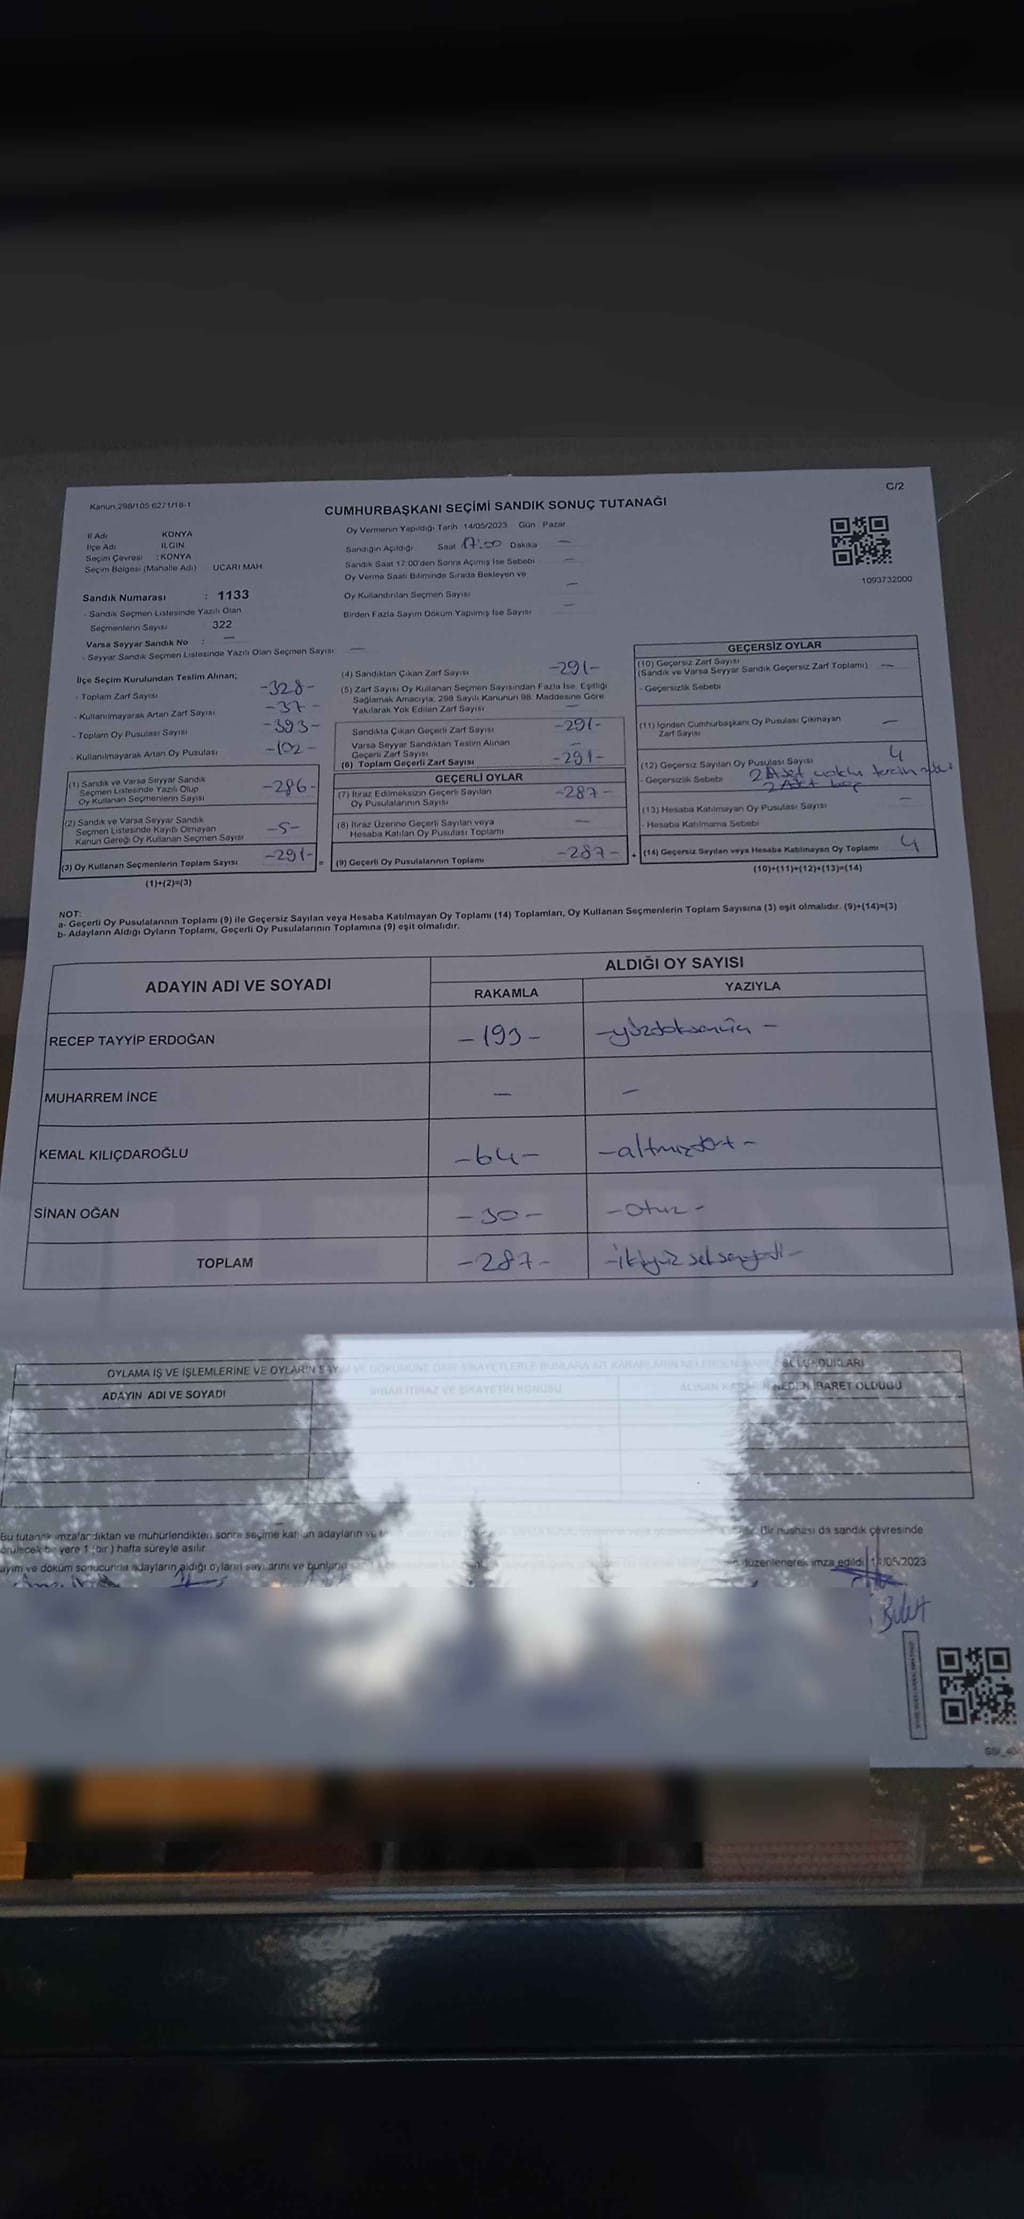 Kanun 298/105 6271/18-1
C/2
CUMHURBAŞKANI SEÇİMİ SANDIK SONUÇ TUTANAĞI
İl Adı KONYA
İlçe Adı ILGIN
Seçim Çevresi : KONYA
Seçim Bölgesi (Mahalle Adı) UCARI MAH
Sandık Numarası : 1133
- Sandık Seçmen Listesinde Yazılı Olan
Seçmenlerin Sayısı 322
Varsa Seyyar Sandık No : —
- Seyyar Sandık Seçmen Listesinde Yazılı Olan Seçmen Sayısı —
Oy Vermenin Yapıldığı Tarih 14/05/2023 Gün Pazar
Sandığın Açıldığı Saat 17:00 Dakika —
Sandık Saat 17:00'den Sonra Açılmış İse Sebebi —
Oy Verme Saati Bitiminde Sırada Bekleyen ve
Oy Kullandırılan Seçmen Sayısı —
Birden Fazla Sayım Döküm Yapılmış İse Sayısı —
1093732000
İlçe Seçim Kurulundan Teslim Alınan;
- Toplam Zarf Sayısı -328-
- Kullanılmayarak Artan Zarf Sayısı -37-
- Toplam Oy Pusulası Sayısı -393-
- Kullanılmayarak Artan Oy Pusulası -102-
(1) Sandık ve Varsa Seyyar Sandık
Seçmen Listesinde Yazılı Olup
Oy Kullanan Seçmenlerin Sayısı -286-
(2) Sandık ve Varsa Seyyar Sandık
Seçmen Listesinde Kayıtlı Olmayan
Kanun Gereği Oy Kullanan Seçmen Sayısı -5-
(3) Oy Kullanan Seçmenlerin Toplam Sayısı -291-
(1)+(2)=(3)
=
(4) Sandıktan Çıkan Zarf Sayısı -291-
(5) Zarf Sayısı Oy Kullanan Seçmen Sayısından Fazla İse, Eşitliği
Sağlamak Amacıyla; 298 Sayılı Kanunun 98. Maddesine Göre
Yakılarak Yok Edilen Zarf Sayısı —
Sandıkta Çıkan Geçerli Zarf Sayısı -291-
Varsa Seyyar Sandıktan Teslim Alınan
Geçerli Zarf Sayısı —
(6) Toplam Geçerli Zarf Sayısı -291-
GEÇERLİ OYLAR
(7) İtiraz Edilmeksizin Geçerli Sayılan
Oy Pusulalarının Sayısı -287-
(8) İtiraz Üzerine Geçerli Sayılan veya
Hesaba Katılan Oy Pusulası Toplamı —
(9) Geçerli Oy Pusulalarının Toplamı -287-
+
GEÇERSİZ OYLAR
(10) Geçersiz Zarf Sayısı
(Sandık ve Varsa Seyyar Sandık Geçersiz Zarf Toplamı) —
- Geçersizlik Sebebi
(11) İçinden Cumhurbaşkanı Oy Pusulası Çıkmayan
Zarf Sayısı —
(12) Geçersiz Sayılan Oy Pusulası Sayısı 4
- Geçersizlik Sebebi 2 Adet
2 Adet boş
(13) Hesaba Katılmayan Oy Pusulası Sayısı —
- Hesaba Katılmama Sebebi
(14) Geçersiz Sayılan veya Hesaba Katılmayan Oy Toplamı 4
(10)+(11)+(12)+(13)=(14)
NOT:
a- Geçerli Oy Pusulalarının Toplamı (9) ile Geçersiz Sayılan veya Hesaba Katılmayan Oy Toplamı (14) Toplamları, Oy Kullanan Seçmenlerin Toplam Sayısına (3) eşit olmalıdır. (9)+(14)=(3)
b- Adayların Aldığı Oyların Toplamı, Geçerli Oy Pusulalarının Toplamına (9) eşit olmalıdır.
ADAYIN ADI VE SOYADI
ALDIĞI OY SAYISI
RAKAMLA YAZIYLA
RECEP TAYYİP ERDOĞAN -193- -yüzdoksanüç-
MUHARREM İNCE — —
KEMAL KILIÇDAROĞLU -64- -altmışdört-
SİNAN OĞAN -30- -otuz-
TOPLAM -287- -ikiyüz seksenyedi-
OYLAMA İŞ VE İŞLEMLERİNE VE OYLARIN SAYIM VE DÖKÜMÜNE DAİR ŞİKAYETLERLE BUNLARA AİT KARARLARIN NELERDEN İBARET BULUNDUKLARI
ADAYIN ADI VE SOYADI
İTİRAZ VE ŞİKAYETİN KONUSU
ALINAN KARARIN NEDEN İBARET OLDUĞU
Bu tutanak imzalandıktan ve mühürlendikten sonra seçime katılan adayların ve bir nüshası da sandık çevresinde
görülecek bir yere 1 (bir) hafta süreyle asılır.
Sayım ve döküm sonucunda adayların aldığı oyların sayılarını ve bunların düzenlenerek imza edildi. /05/2023
Bulut